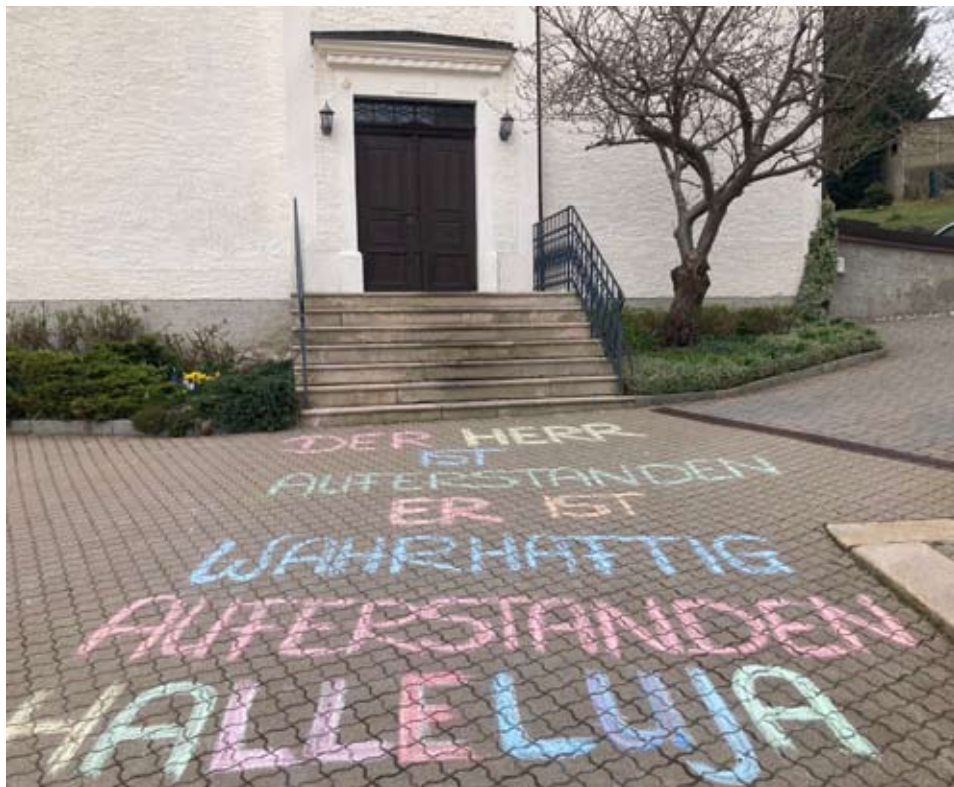 DER HERR
IST
AUFERSTANDEN
ER IST
WAHRHAFTIG
AUFERSTANDEN
HALLELUJA